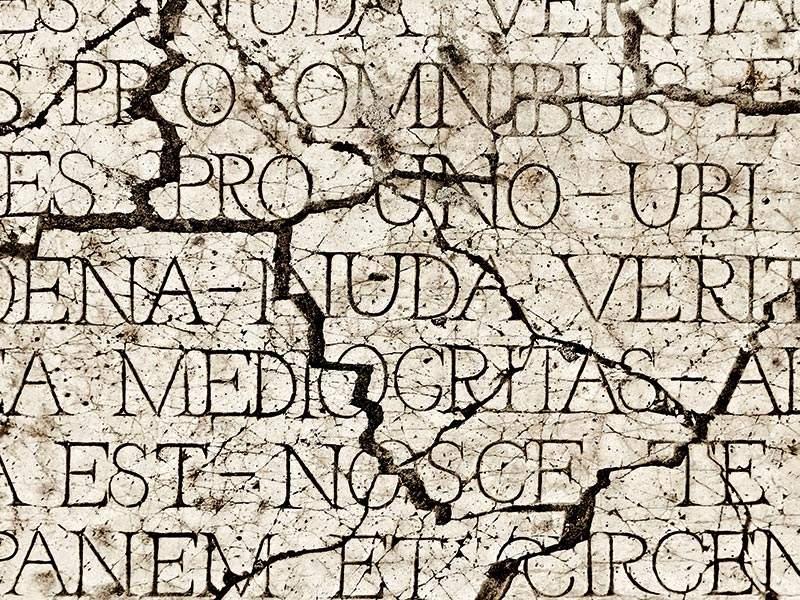 ES NUDA VERITA
S PRO OMNIBUS E
ES PRO UNO-UBI
DENA-NUDA VERIT
EA MEDIOCRITAS-AL
A EST-NOSCE TE
PANEM ET CIRCEN